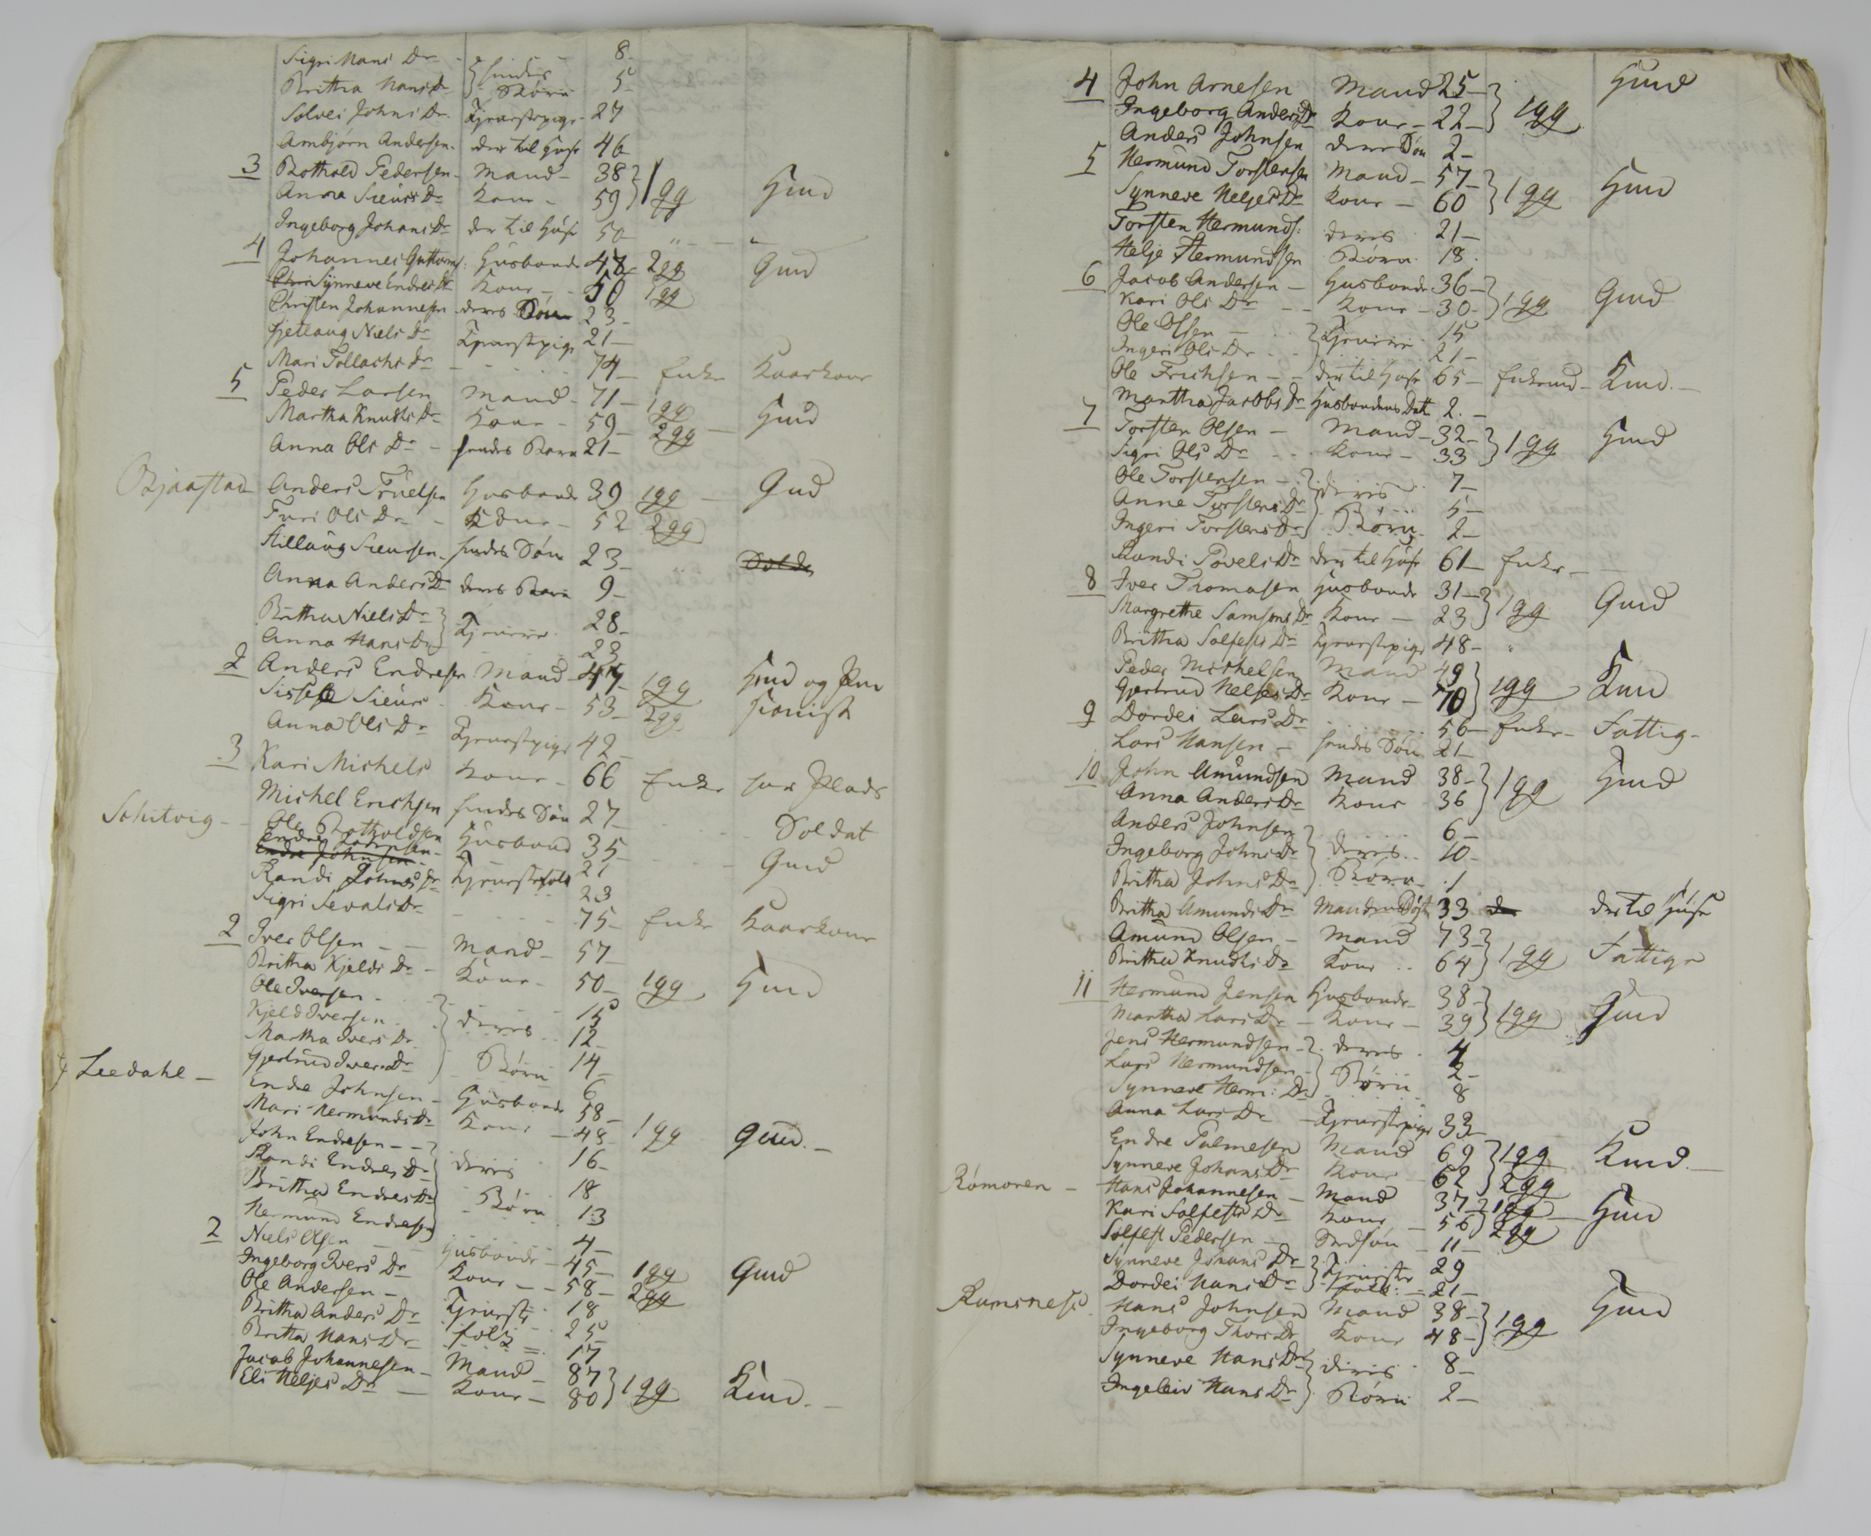 Sigri Hans Dr 8
Britha HansDr hendes Børn 5
Solvei JohnsDr Tjenestepige 27
Ambjørn Andersen der til Huse 46
3 Bothold Pedersen Mand 38 1 gg Hmd
Anna SieursDr Kone 59
Ingeborg JohansDr der til Huse 50
4 Johannes Guttorms: Husbonde 48 2gg Gmd
Synneve EndresDr Kone 50 1gg
Christen Johannesen deres Søn 23
Gjetlaug NielsDr Tjenestepige 21
Mari Tollachs Dr 74 Enke Kaarkone
5 Peder Larsen Mand 71 1gg Hmd
Martha KnudsDr Kone 59 2gg
Anna Ols Dr hendes Barn 21
Bjaastad Anders Truelsen Husbonde 39 1gg Gmd
Turi Ols Dr Kone 52 2gg
Hillaug Sieursen hendes Søn 23 Sold
Anna AndersDr deres Barn 9
Britha NielsDr Tjenere 28
Anna HansDr 23
2 Anders Endresen Mand 47 1gg Hmd og Pen
Sissele Sieurs Kone 53 2gg sionist
Anna Ols Dr Tjenestepige 42
3 Kari Michels Kone 66 Enke har Plads
Michel Erichsen hendes Søn 27 Soldat
Schitvig Ole Botholdsen Husbond 35 Gmd
Endre Johnsen 21
Randi Johns Dr Tjenestefolk 23
Sigri SevalsDr 75 Enke Kaarkone
2 Iver Olsen Mand 57
Britha Kjelds Dr Kone 50 1gg Hmd
Ole Iversen 15
Kjeld Iversen deres 12
Martha Ivers Dr Børn 14
Gjertrud IversDr 6
Leedahl Endre Johnsen Husbonde 58
Mari HermundsDr Kone 48 1gg Gmd.
John Endresen 16
Randi Endres Dr deres 18
Britha EndresDr Børn 13
Hermund Endresen 4
2 Niels Olsen Husbonde 45 1gg Gmd
Ingeborg Ivers Dr Kone 58 2gg
Ole Andersen Tjeneste 18
Britha Anders Dr folk 25
Britha Hans Dr 17
Jacob Johannesen Mand 87 1gg Kmd.
Eli Heljes Dr Kone 80
4 John Arnesen Mand 25 1gg Hmd
Ingeborg AndersDr Kone 22
Anders Johnsen deres Søn 2
5 Hermund Torstensen Mand 57 1gg Hmd
Synneve HeljesDr Kone 60
Torsten Hermunds: deres 21
Helje Hermundsen Børn 18
6 Jacob Andersen Husbonde 36 1gg Gmd
Kari Ols Dr Kone 30
Ole Olsen Tjenere 15
Ingeri Ols Dr 21
Ole Erichsen der til Huse 65 Enkemd Kmd.
Martha JacobsDr Husbondens Dat 2
7 Torsten Olsen Mand 32 1gg Hmd
Sigri Ols Dr Kone 33
Ole Torstensen deres 7
Anne TorstensDr Børn 5
Ingeri TorstensDr 2
Randi PovelsDr der til Huse 61 Enke
8 Iver Thomasen Husbonde 31 1gg Gmd
Margrethe SamsonsDr Kone 23
Britha Solfests Dr Tjenestepige 48
Peder Michelsen Mand 49 1gg Kmd
Gjertrud HeljesDr Kone 70
9 Dordei Lars Dr 56 Enke Fattig
Lars Hansen hendes Søn 21
10 John Amundsen Mand 38 1gg Hmd
Anna AndersDr Kone 36
Anders Johnsen 6
Ingeborg JohnsDr deres 10
Britha JohnsDr Børn 1
Britha AmundsDr Mandens Søst 33 der til Huse
Amund Olsen Mand 73 1gg Fattige
Britha KnudsDr Kone 64
11 Hermund Jensen Husbonde 38 1gg Gmd
Martha Lars Dr Kone 39
Jens Hermundsen deres 4
Lars Hermundsen Børn 2
Synneve Herm: Dr 8
Anna Lars Dr Tjenestepige 33
Endre Palmesen Mand 69 1gg Kmd.
Synneve JohansDr Kone 62 2gg
Rømoren Hans Johannesen Mand 37 1gg Hmd
Kari SolfestsDr Kone 56 2gg
Solfest Pedersen Stedsøn 11
Synneve Johans Dr Tjeneste 29
Dordei HansDr folk 21
Ramsnes Hans Johnsen Mand 38 1gg Hmd
Ingeborg ThorsDr Kone 48
Synneve HansDr deres 8
Ingeleiv HansDr Børn 2